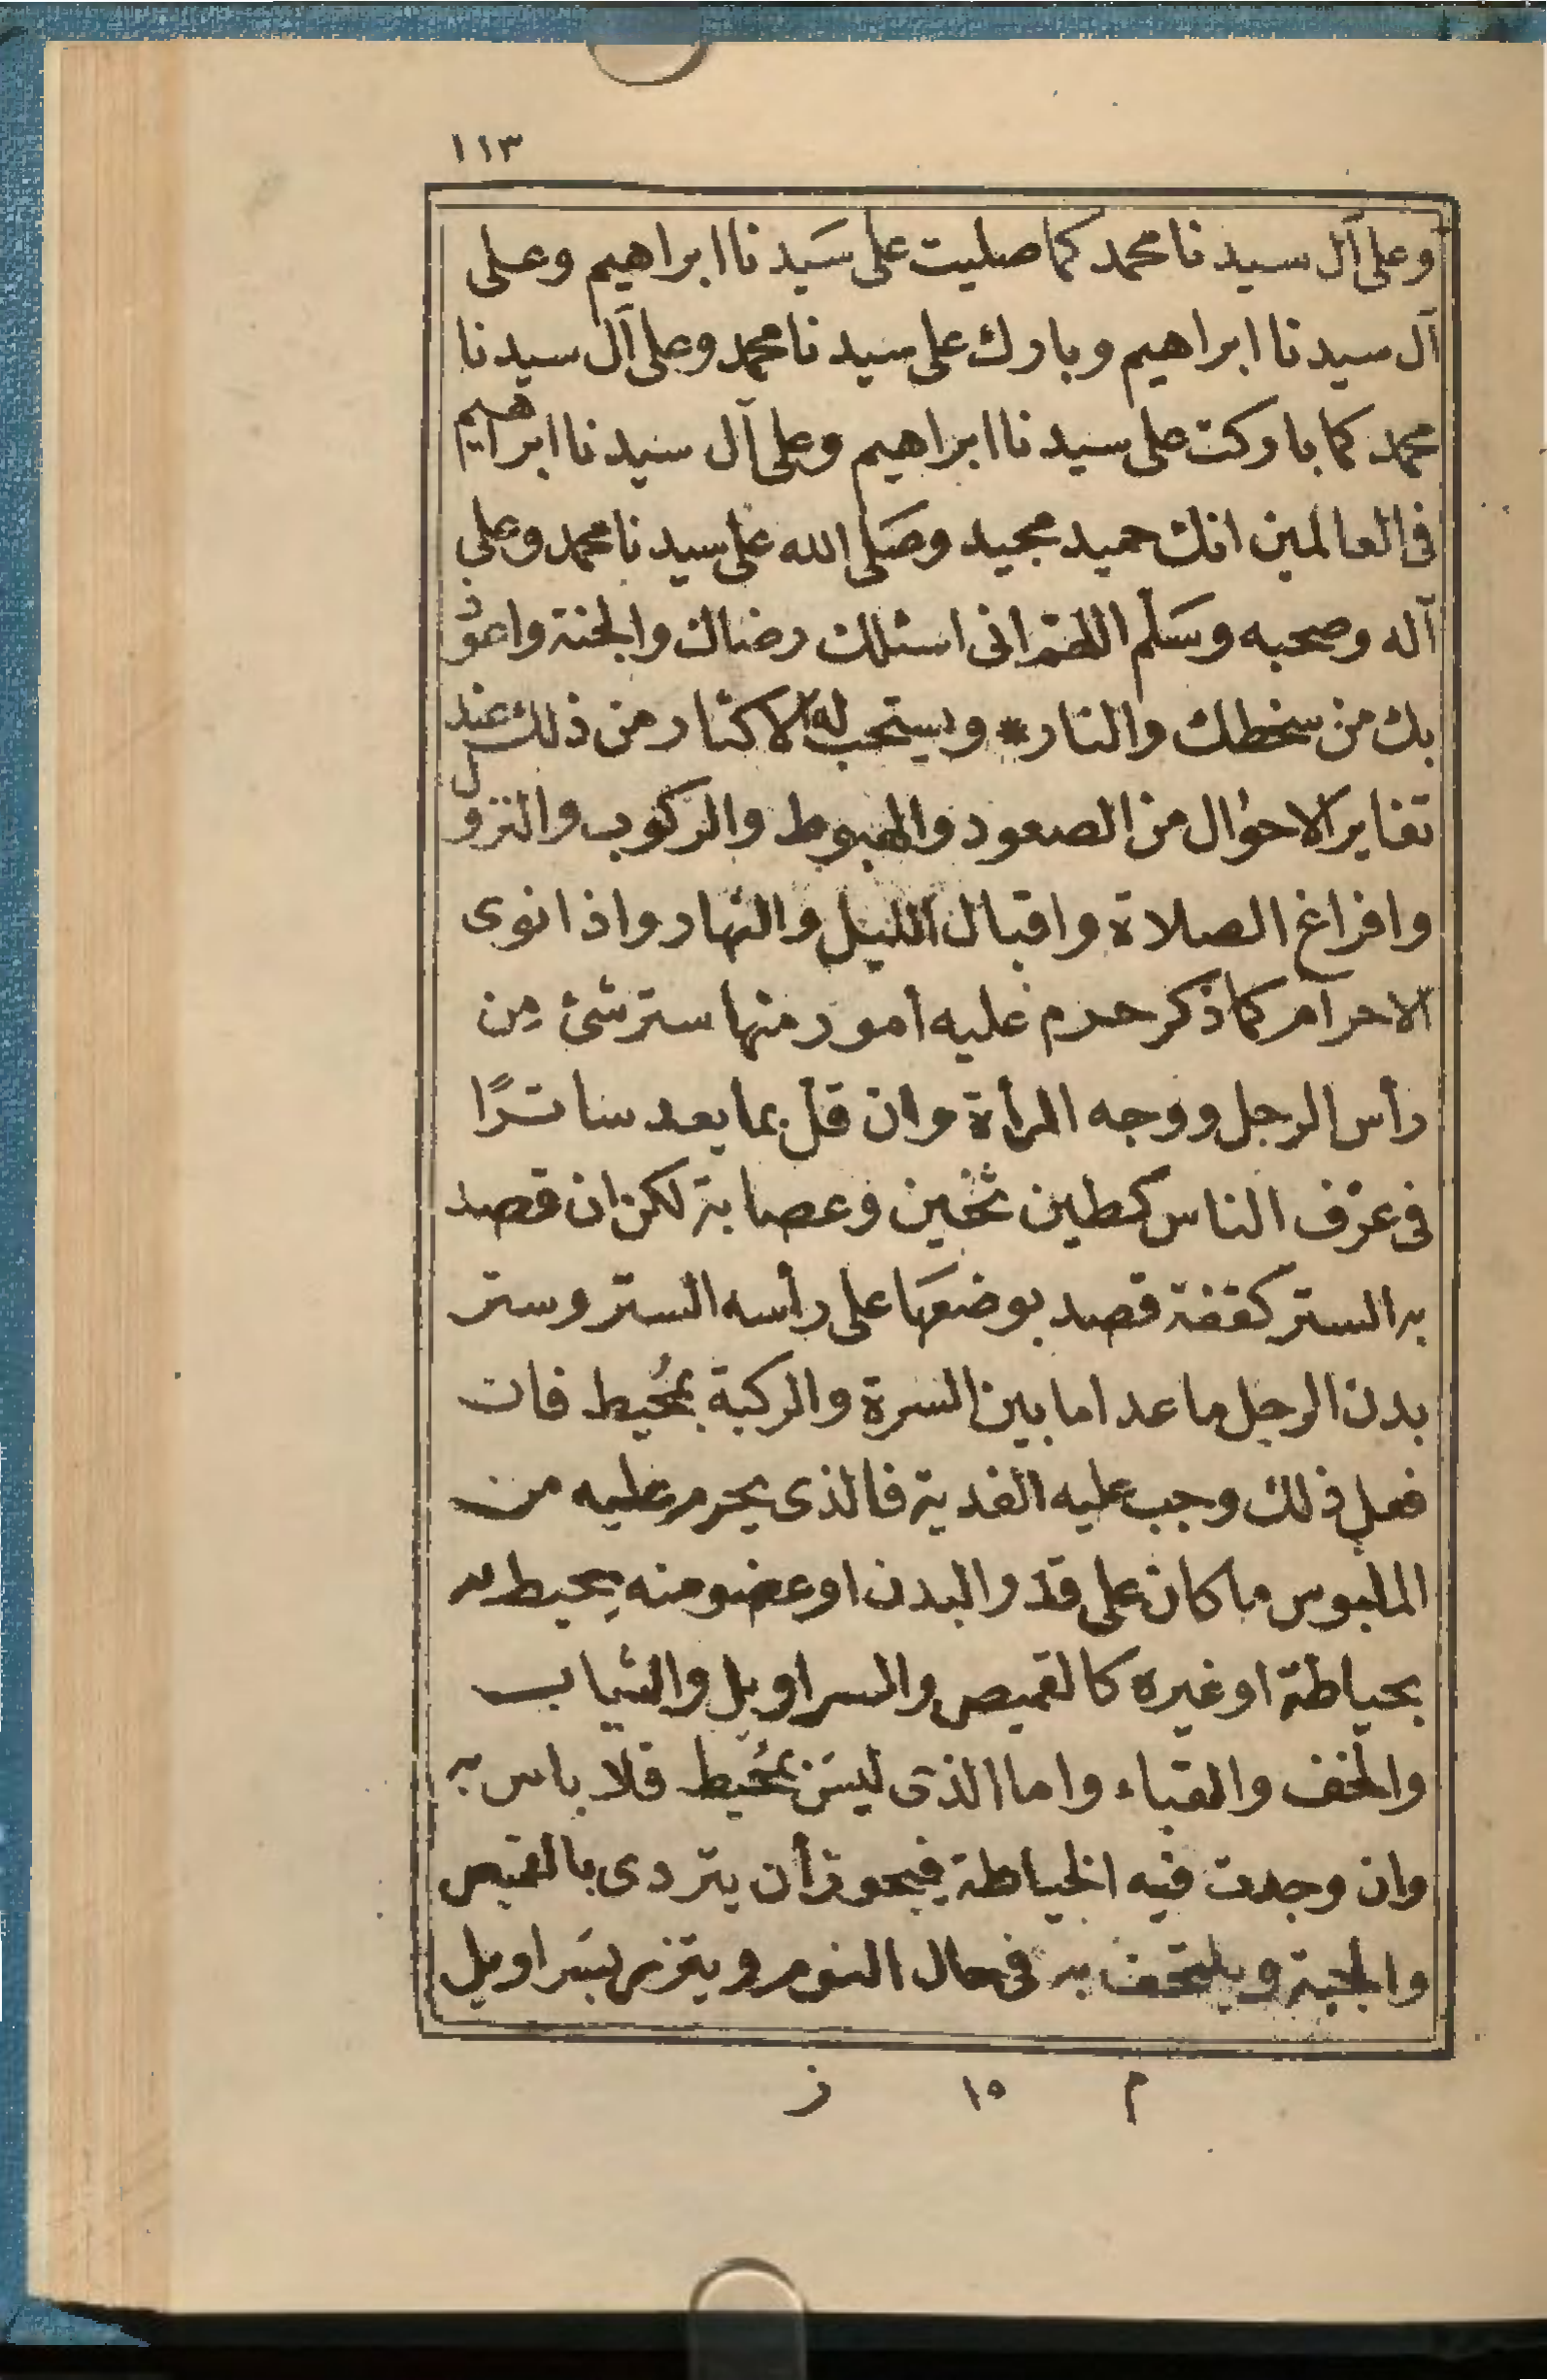 ١١٣
وعلى آل سيدنا محمد كما صليت على سَيدنا ابراهيم وعلى
آل سيدنا ابراهيم وبارك على سيدنا محمد وعلى آل سيدنا
محمد كما باركت على سيدنا ابراهيم وعلى آل سيدنا ابراهيم
فى العالمين انك حميد مجيد وصَلى الله على سيدنا محمد وعلى
آله وصحبه وسَلم اللهم انى اسئلك رضاك والجنة واعوذ
بك من سخطك والنار * ويستحب له الاكثار من ذلك عند
تغاير الاحوال من الصعود والهبوط والركوب والنزول
وافراغ الصلاة واقبال الليل والنهار واذا نوى
الاحرام كما ذكر حرم عليه أمور منها ستر شئ مِن
رأس الرجل ووجه المرأة وان قل بما يعد ساترًا
فى عرف الناس كطين ثخين وعصابة لكن ان قصد
به الستر كقفة قصد بوضعها على رأسه الستر وستر
بدن الرجل ما عدا ما بين السرة والركبة بمُحيط فان
فعل ذلك وجب عليه الفدية فالذى يحرم عليه من
الملبوس ما كان على قدر البدن او عضو منه يحيط به
بحياطة او غيره كالقميص والسراويل والثياب
والخف والقباء واما الذى ليس بمُحيط فلا باس به
وان وجدت فيه الخياطة فيجوز أن يتردى بالقميص
والجبة ويلتحف به فى حال النوم ويتزر بسَراويل
م ١٥ ز